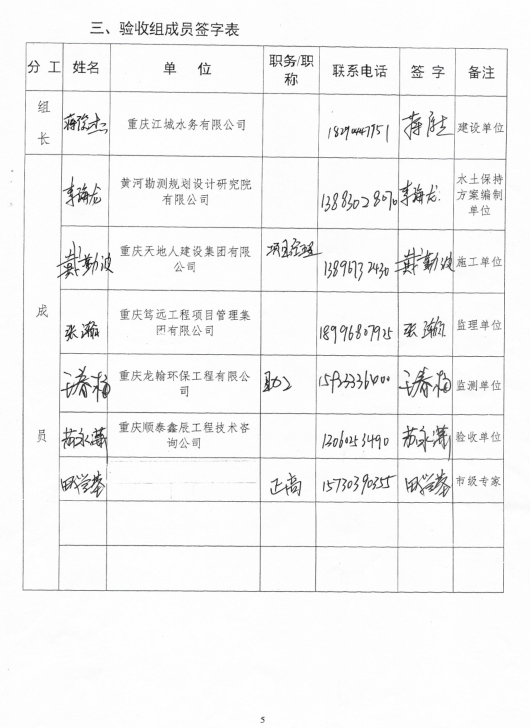 三、验收组成员签字表
分 工 姓名 单 位 职务/职称 联系电话 签 字 备注
组长 重庆江城水务有限公司 建设单位
成员
李海龙 黄河勘测规划设计研究院有限公司 13883028070 李海龙 水土保持方案编制单位
戴勤波 重庆天地人建设集团有限公司 项目经理 13896732430 戴勤波 施工单位
张瀚 重庆笃远工程项目管理集团有限公司 18996807925 张瀚 监理单位
重庆龙翰环保工程有限公司 助工 监测单位
苏永潇 重庆顺泰鑫辰工程技术咨询公司 苏永潇 验收单位
正高 15730390355 市级专家
5